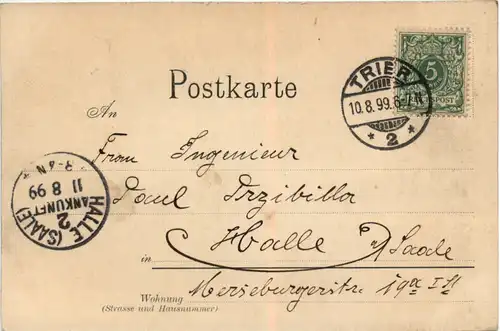 5
TRIER
10.8.99.6-7N
* 2 *
Postkarte
An
Frau Ingenieur
Paul Przibilla
in Halle a/Saale
Wohnung Merseburgerstr. 19a I Et
(Strasse und Hausnummer)
HALLE (SAALE)
2
ANKUNFT
11 8 99